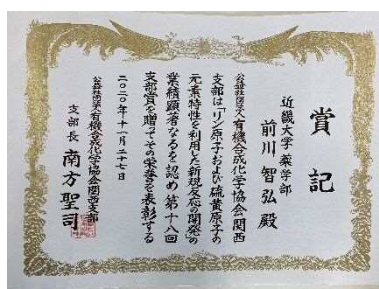 賞記
近畿大学 薬学部
前川智弘 殿
公益社団法人有機合成化学協会関西
支部は「リン原子および硫黄原子の
元素特性を利用した新規反応の開発」の
業績顕著なるを認め第十八回
支部賞を贈ってその栄誉を表彰する
二〇二〇年十一月二十七日
公益社団法人有機合成化学協会関西支部
支部長 南方聖司